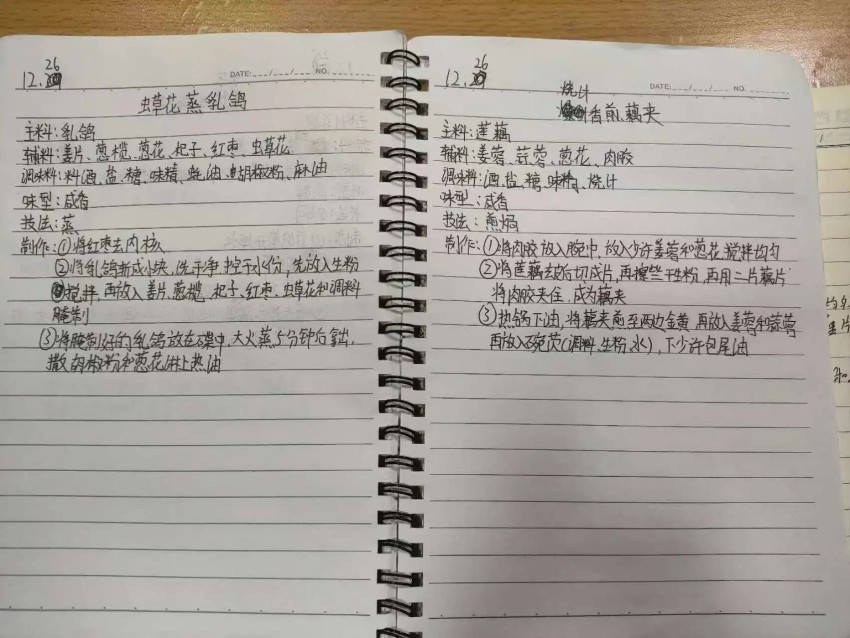 26
12.
DATE: NO.
虫草花蒸乳鸽
主料:乳鸽
辅料:姜片、葱榄、葱花、杞子、红枣、虫草花
调味料:料酒、盐、糖、味精、蚝油、胡椒粉、麻油
味型:咸香
技法:蒸
制作:①将红枣去内核
②将乳鸽斩成小块,洗干净,控干水分,先放入生粉
搅拌,再放入姜片、葱榄、杞子、红枣、虫草花和调料
腌制
③将腌制好的乳鸽放在碟中,大火蒸5分钟后拿出,
撒胡椒粉和葱花淋上热油
26
12.
DATE: NO.
烧汁
香煎藕夹
主料:莲藕
辅料:姜蓉、蒜蓉、葱花、肉胶
调味料:酒、盐、糖、味精、烧汁
味型:咸香
技法:煎焗
制作:①将肉胶放入碗中,放入少许姜蓉和葱花,搅拌均匀
②将莲藕去皮后切成片,再擦些干生粉,再用二片藕片
将肉胶夹住,成为藕夹
③热锅下油,将藕夹煎至两边金黄,再放入姜蓉和蒜蓉
再放入碗芡(调料、生粉、水),下少许包尾油